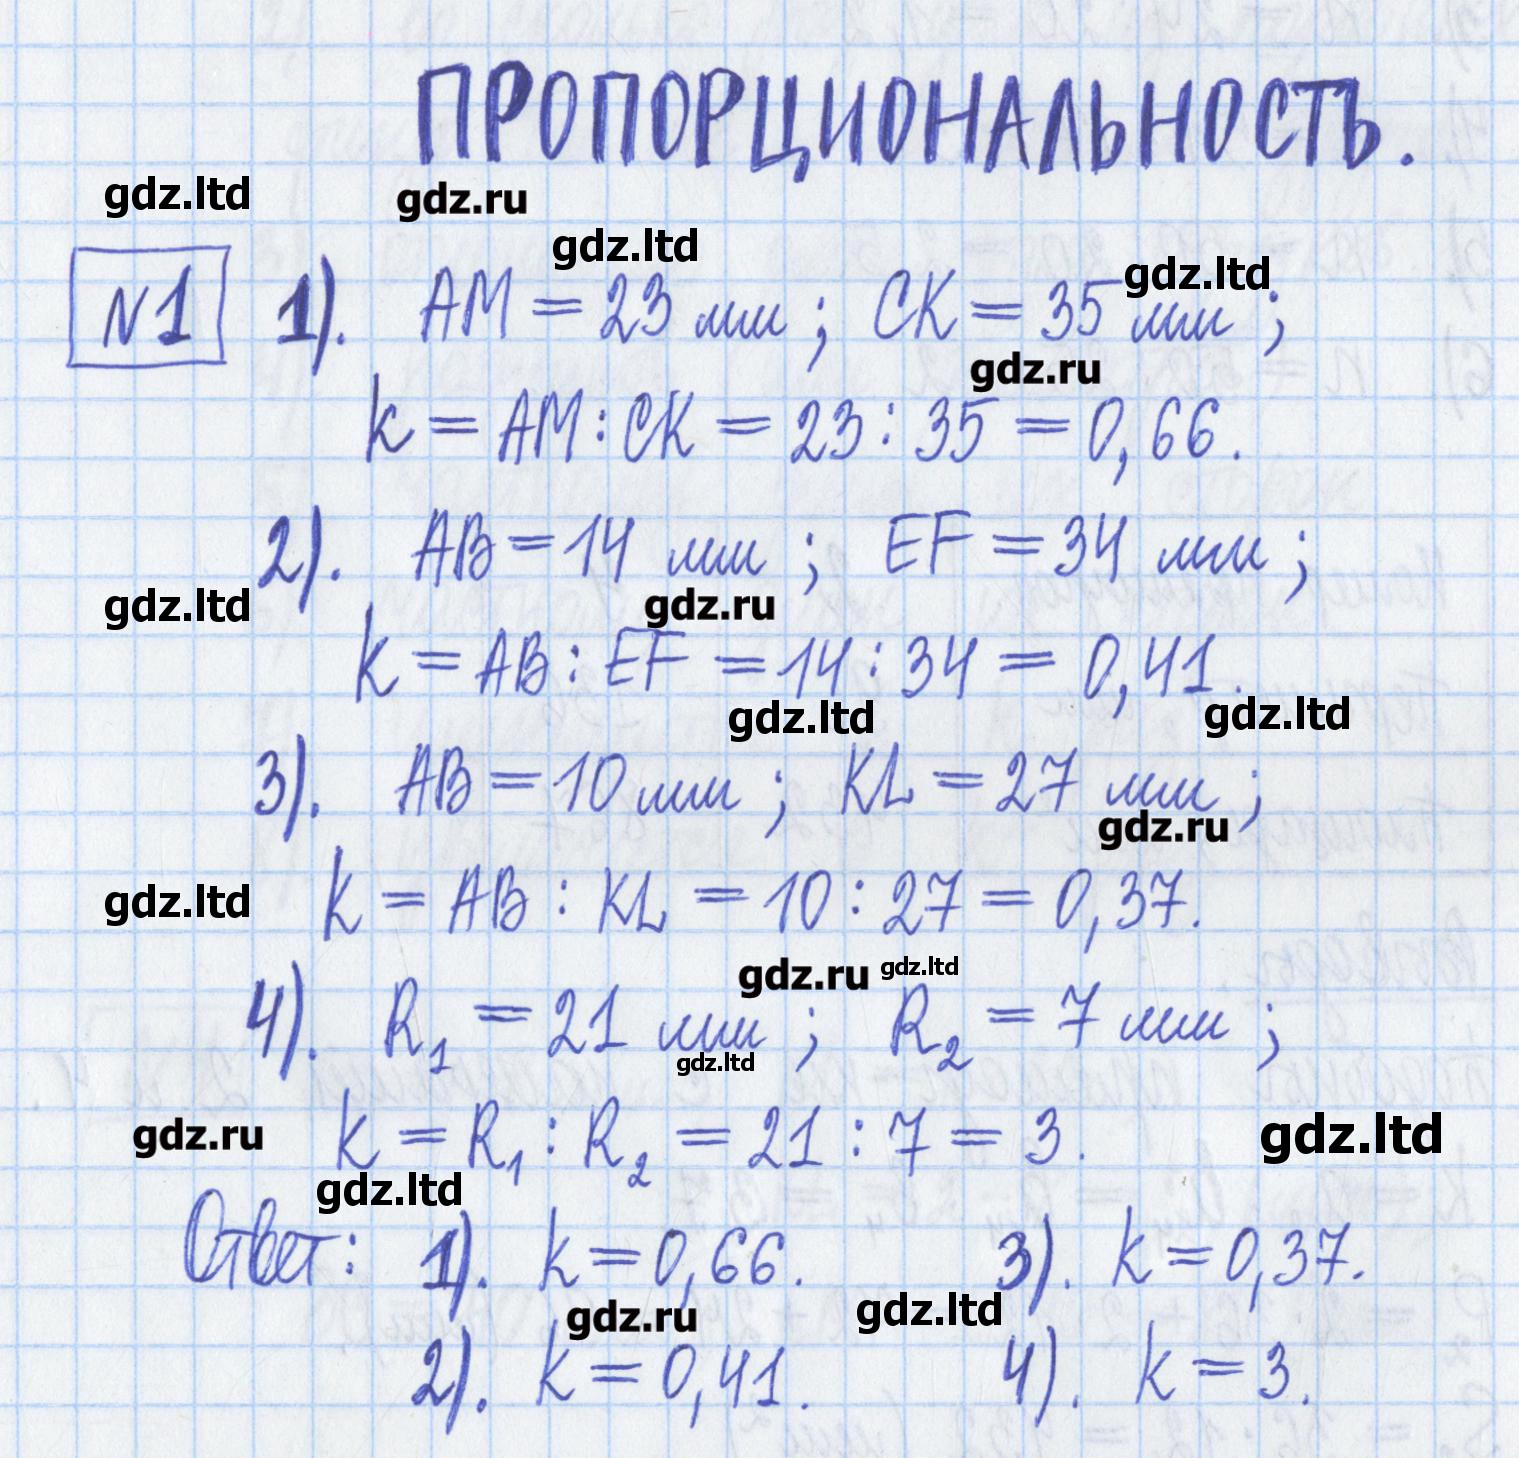 ПРОПОРЦИОНАЛЬНОСТЬ.
gdz.ltd gdz.ru
gdz.ltd
gdz.ltd
№1 1). AM = 23 мм ; CK = 35 мм ;
gdz.ru
k = AM : CK = 23 : 35 = 0,66.
2). AB = 14 мм ; EF = 34 мм ;
gdz.ltd gdz.ru
k = AB : EF = 14 : 34 = 0,41.
gdz.ltd gdz.ltd
3). AB = 10 мм ; KL = 27 мм ;
gdz.ru
gdz.ltd k = AB : KL = 10 : 27 = 0,37.
gdz.ru gdz.ltd
4). R₁ = 21 мм ; R₂ = 7 мм ;
gdz.ltd
gdz.ru k = R₁ : R₂ = 21 : 7 = 3. gdz.ltd
gdz.ltd
Ответ: 1). k = 0,66. 3). k = 0,37.
gdz.ru gdz.ltd
2). k = 0,41. 4). k = 3.